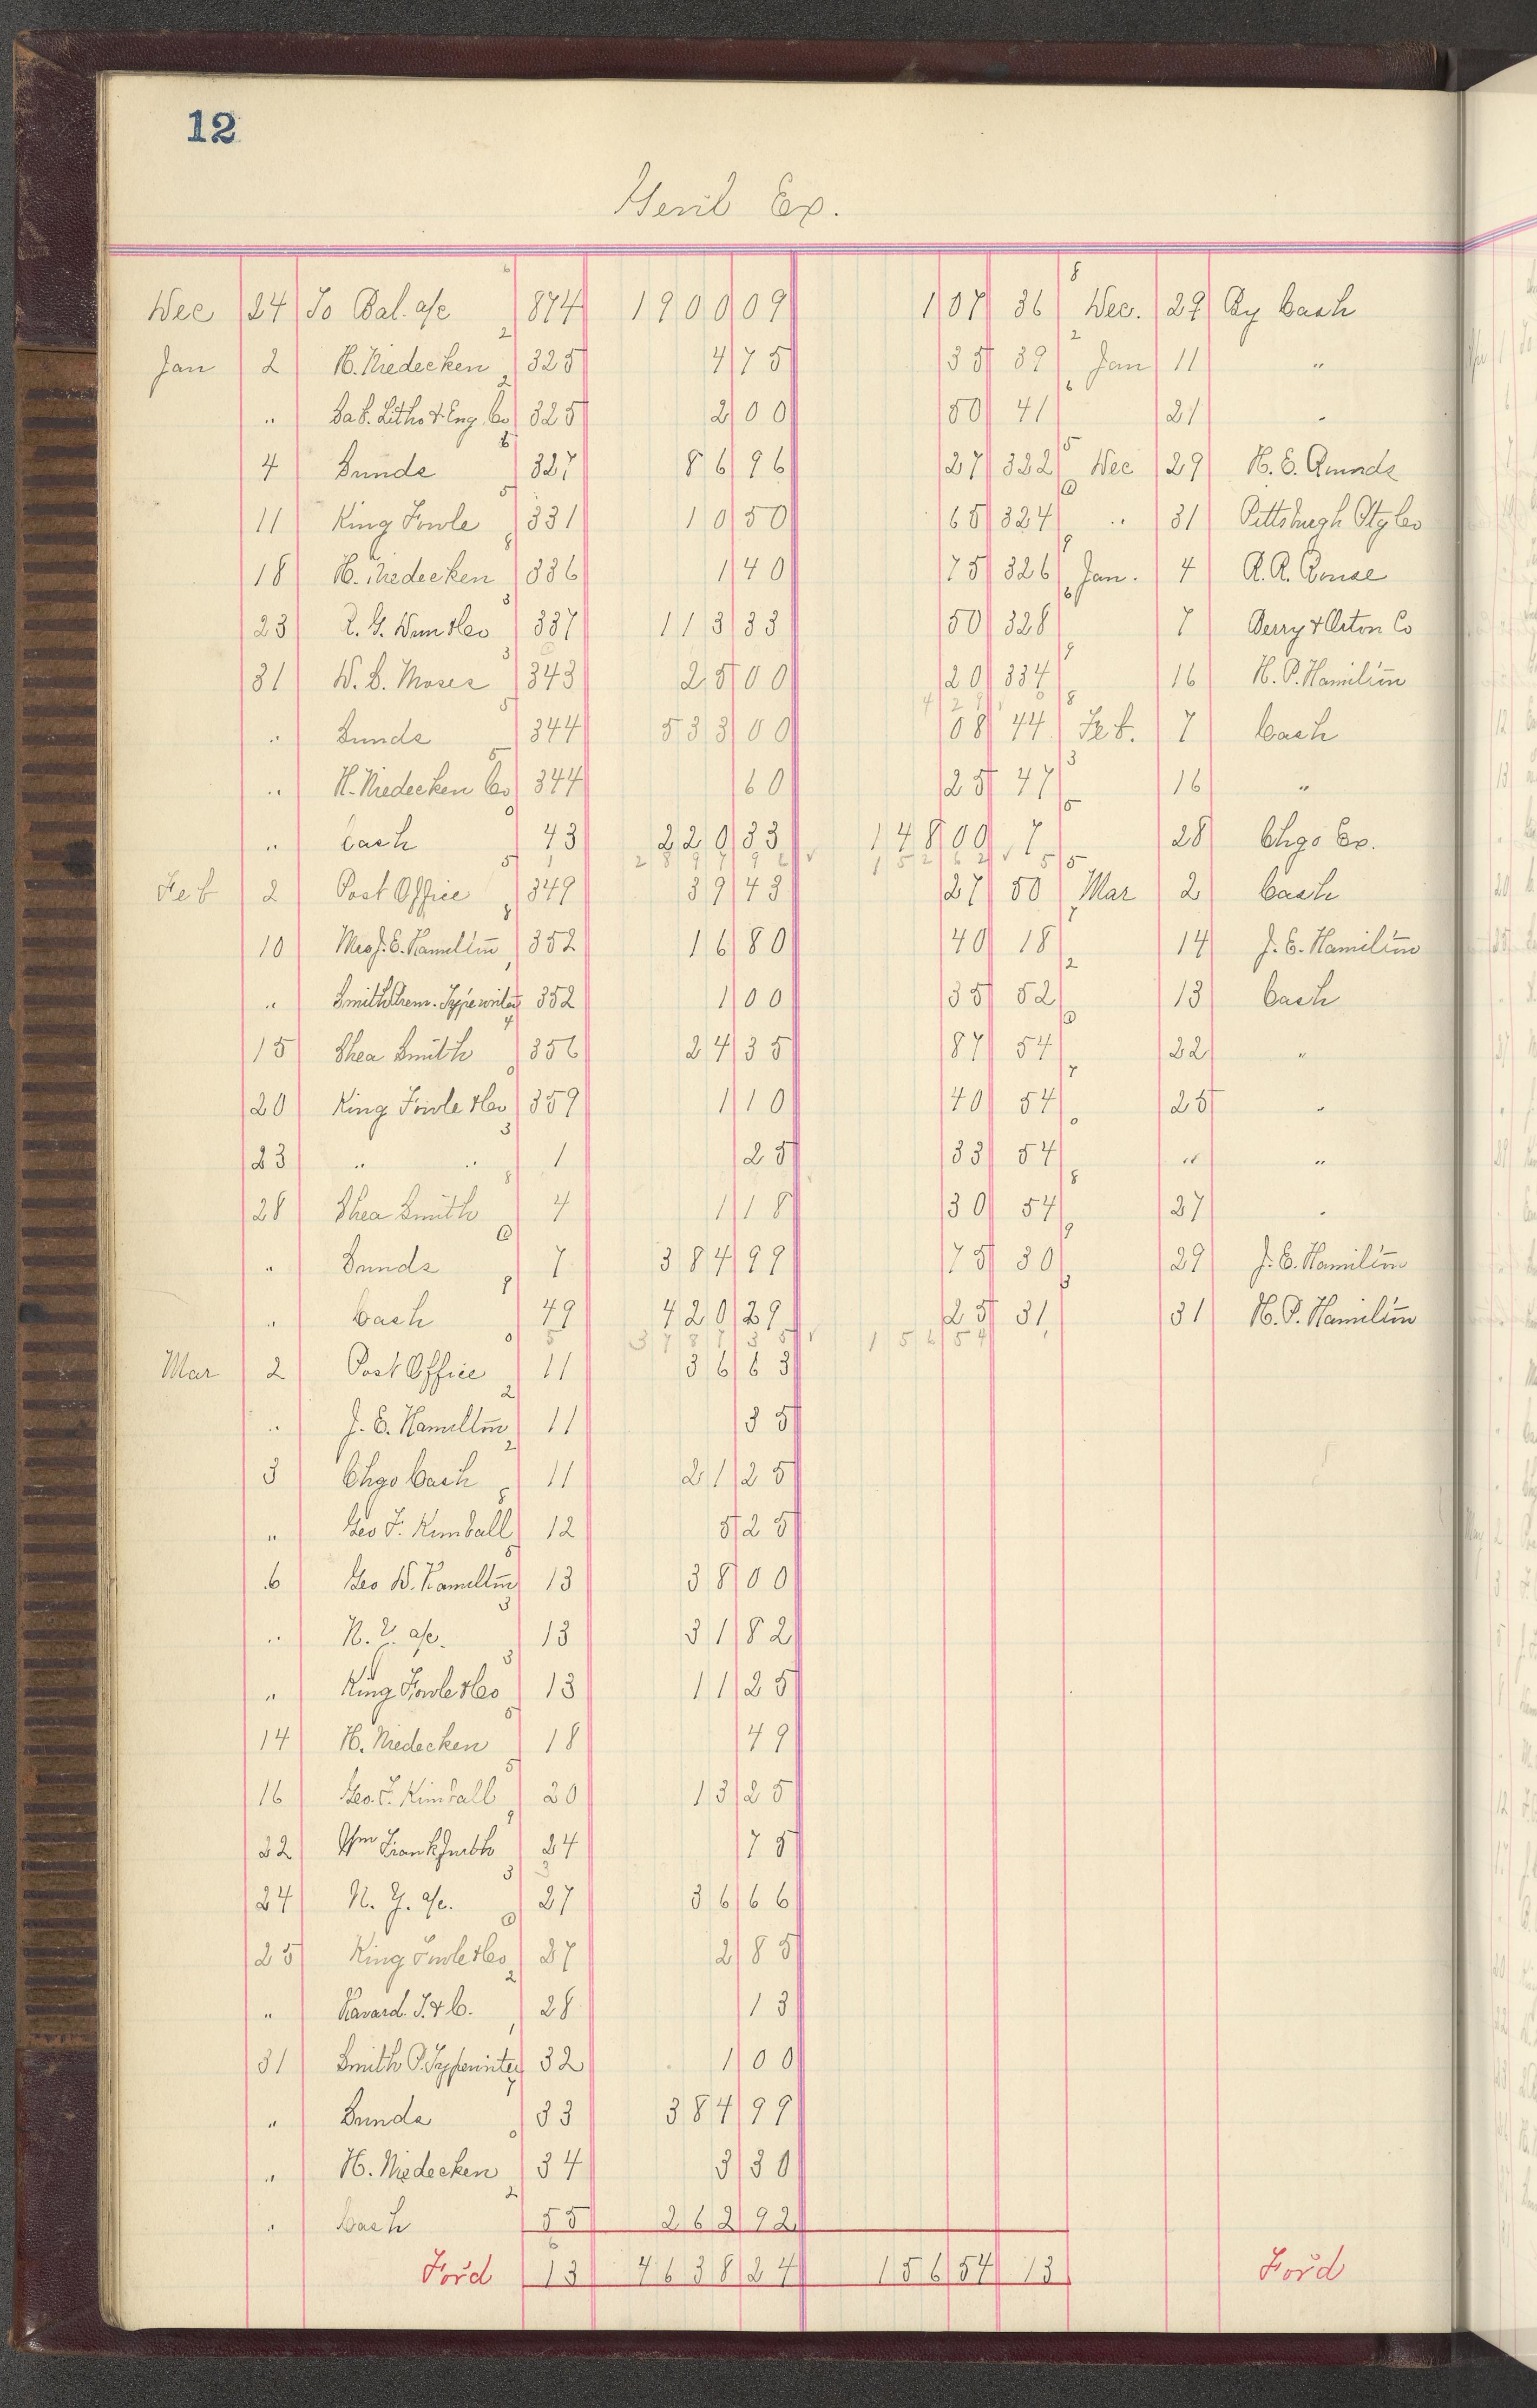 12
Genl Ex.
Dec 24 To Bal. a/c 874 1900 09 1 07 36 Dec. 29 By Cash
Jan 2 H. Niedecken 325 4 75 35 39 Jan 11 "
" Litho & Eng. Co 325 2 00 50 41 21 "
4 Sunds 327 86 96 27 322 Dec 29 H. E.
11 King Fowle 331 10 50 65 324 " 31 Pittsburgh
18 H. Niedecken 336 1 40 75 326 Jan. 4 R. R.
23 & Co 337 113 33 50 328 7 Berry & Orton Co
31 W. B. Moses 343 25 00 20 334 16 H. P. Hamilton
" Sunds 344 533 00 08 44 Feb. 7 Cash
" H. Niedecken Co 344 60 25 47 16 "
" Cash 43 220 33 148 00 7 28 Chgo Ex.
2897 92 152 62
Feb 2 Post Office 349 39 43 27 50 Mar 2 Cash
10 J. E. Hamilton 352 16 80 40 18 14 J. E. Hamilton
" Smith Prem. Typewriter 352 1 00 35 52 13 Cash
15 Shea Smith 356 24 35 87 54 22 "
20 King Fowle & Co 359 1 10 40 54 25 "
23 " " 1 25 33 54 " "
28 Shea Smith 4 1 18 30 54 27 "
" Sunds 7 384 99 75 30 29 J. E. Hamilton
" Cash 49 420 29 25 31 31 H. P. Hamilton
3787 35 156 54
Mar 2 Post Office 11 36 63
" J. E. Hamilton 11 35
3 Chgo Cash 11 21 25
" Geo F. Kimball 12 5 25
6 Geo W. Hamilton 13 38 00
" N. Y. a/c. 13 31 82
" King Fowle & Co 13 11 25
14 H. Niedecken 18 49
16 Geo. F. Kimball 20 13 25
22 Wm Frankfurth 24 75
24 N. Y. a/c. 27 36 66
25 King Fowle & Co 27 2 85
" 28 13
31 Smith P. Typewriter 32 1 00
" Sunds 33 384 99
" H. Niedecken 34 3 30
" Cash 55 262 92
For'd 13 4638 24 156 54 13 For'd